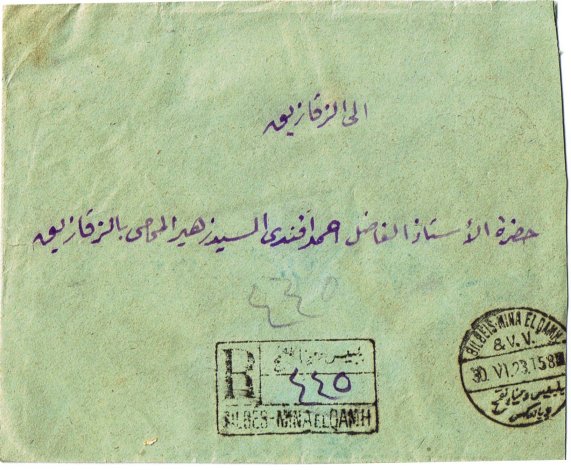 الى الزقازيق
حضرة الأستاذ الفاضل احمد افندى السيد زهير المحامى بالزقازيق
٤٤٥
R
بلبيس
٤٤٥
BILBES-MINA EL QAMH
BILBEIS-MINA EL QAMH
& V.V.
30 VI.23.158
بلبيس ومينا القمح
وبالعكس